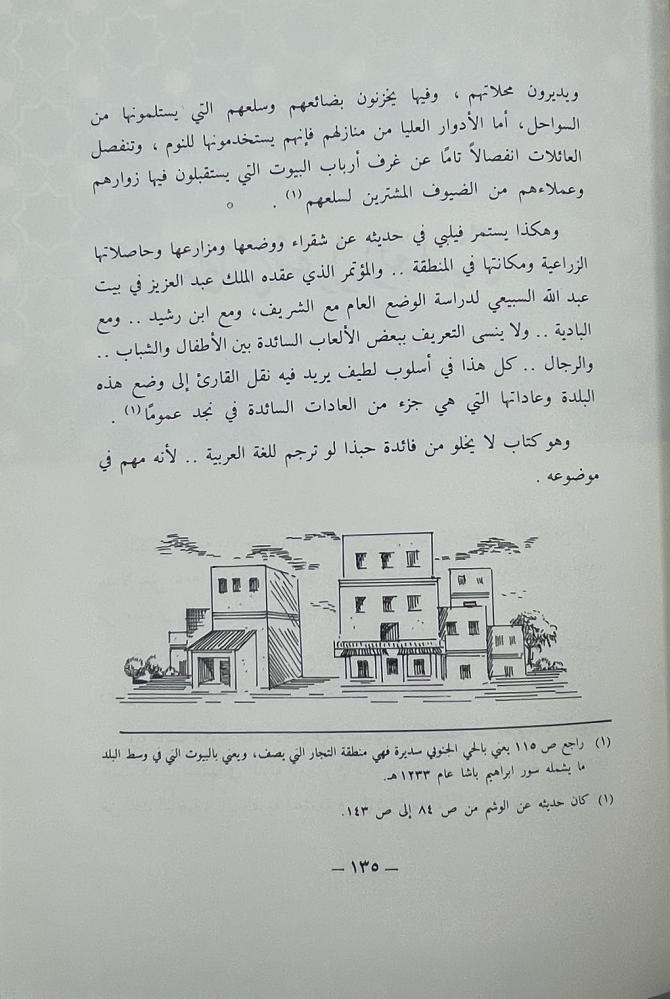 ويديرون محلاتهم ، وفيها يخزنون بضائعهم وسلعهم التي يستلمونها من
السواحل، أما الأدوار العليا من منازلهم فإنهم يستخدمونها للنوم ، وتنفصل
العائلات انفصالاً تامًا عن غرف أرباب البيوت التي يستقبلون فيها زوارهم
وعملاءهم من الضيوف المشترين لسلعهم (١) .
وهكذا يستمر فيلبي في حديثه عن شقراء ووضعها ومزارعها وحاصلاتها
الزراعية ومكانتها في المنطقة .. والمؤتمر الذي عقده الملك عبد العزيز في بيت
عبد الله السبيعي لدراسة الوضع العام مع الشريف، ومع ابن رشيد .. ومع
البادية .. ولا ينسى التعريف ببعض الألعاب السائدة بين الأطفال والشباب ..
والرجال .. كل هذا في أسلوب لطيف يريد فيه نقل القارئ إلى وضع هذه
البلدة وعاداتها التي هي جزء من العادات السائدة في نجد عمومًا (١) .
وهو كتاب لا يخلو من فائدة حبذا لو ترجم للغة العربية .. لأنه مهم في
موضوعه .
(١) راجع ص ١١٥ يعني بالحي الجنوبي سديرة فهي منطقة التجار التي يصف، ويعني بالبيوت التي في وسط البلد
ما يشمله سور ابراهيم باشا عام ١٢٣٣ هـ.
(١) كان حديثه عن الوشم من ص ٨٤ إلى ص ١٤٣.
— ١٣٥ —